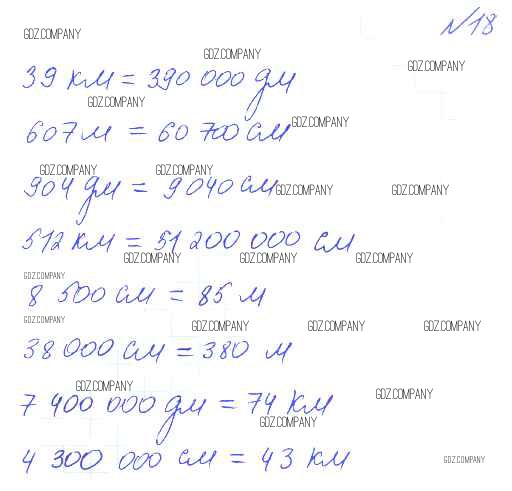 №18
GDZ.COMPANY
GDZ.COMPANY
GDZ.COMPANY
39 км = 390 000 дм
GDZ.COMPANY
GDZ.COMPANY
607 м = 60 700 см
GDZ.COMPANY GDZ.COMPANY
904 дм = 9 040 см
GDZ.COMPANY GDZ.COMPANY
512 км = 51 200 000 см
GDZ.COMPANY GDZ.COMPANY GDZ.COMPANY
GDZ.COMPANY
8 500 см = 85 м
GDZ.COMPANY
GDZ.COMPANY GDZ.COMPANY GDZ.COMPANY
38 000 см = 380 м
GDZ.COMPANY
GDZ.COMPANY
7 400 000 дм = 74 км
GDZ.COMPANY
4 300 000 см = 43 км
GDZ.COMPANY